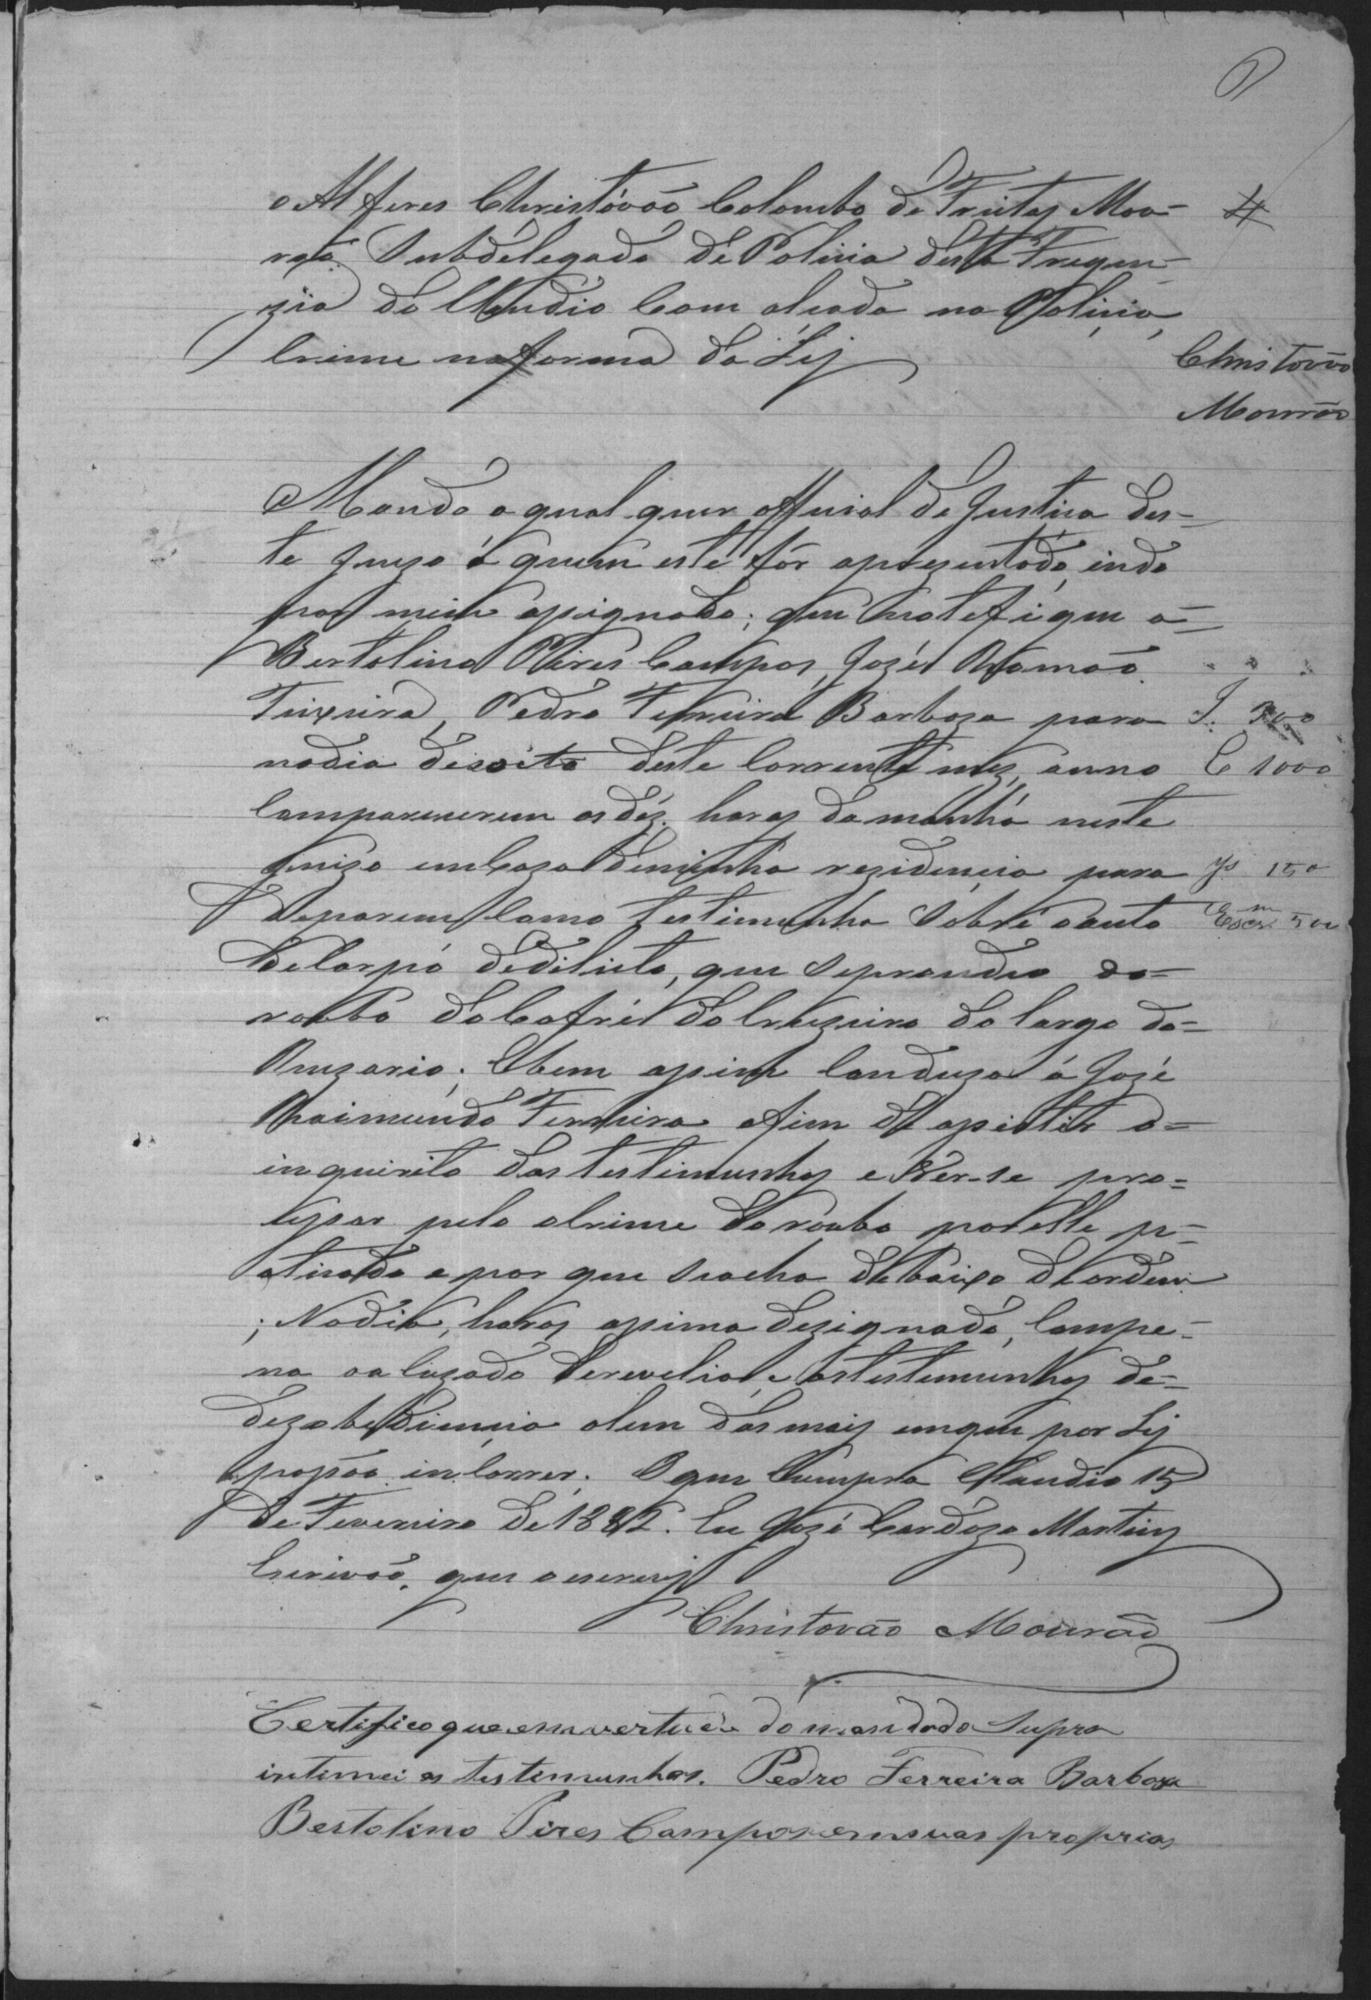 4
O Alferes Christóvão Colombo de Freitas Mou-
rão Subdelegado de Policia desta Fregue-
zia do Claudio com alçada no Policia,
Crime na forma da Lej
Christovão
Mourão
Mando a qual quer official de Justiça des-
te Juizo á quem este fôr aprezentado, indo
por mim assignado; que notefique a=
Bertolino Pires Campos, José Romão
Teixeira, Pedro Ferreira Barboza para
no dia desoito deste Corrente mez, anno
Comparecerem as déz horas da manhã neste
Juizo em Caza de minha rezidencia para
Deporem Como testimunha Sobre o auto
de Corpo de dilicto, que se prendeo ao=
roubo do Cofre do Cruzeiro do largo do=
Ruzario. E bem assim Conduza á José
Raimundo Ferreira afim de assistir o=
inquirito das testimunhas e vêr-se pro=
cessar pelo Crime do roubo por elle pr-
aticado e por que se acha debaixo de ordem
; No dia, horas assima dezignado, Com pe-
na ao acuzado de revelia, e as testemunhas de=
dezobediencia alem das mais em que por Lej
possão incorrer. O que Cumpra Claudio 15
de Fevereiro de 1882. Eu José Cardozo Martins
Escrivão, que o escrevi
Christovão Mourão
J. 500
C 1000
150
500
Certifico que em vertude do mandado Supra
intimei as testimunhas. Pedro Ferreira Barboza
Bestolino Pires Campos em suas proprias